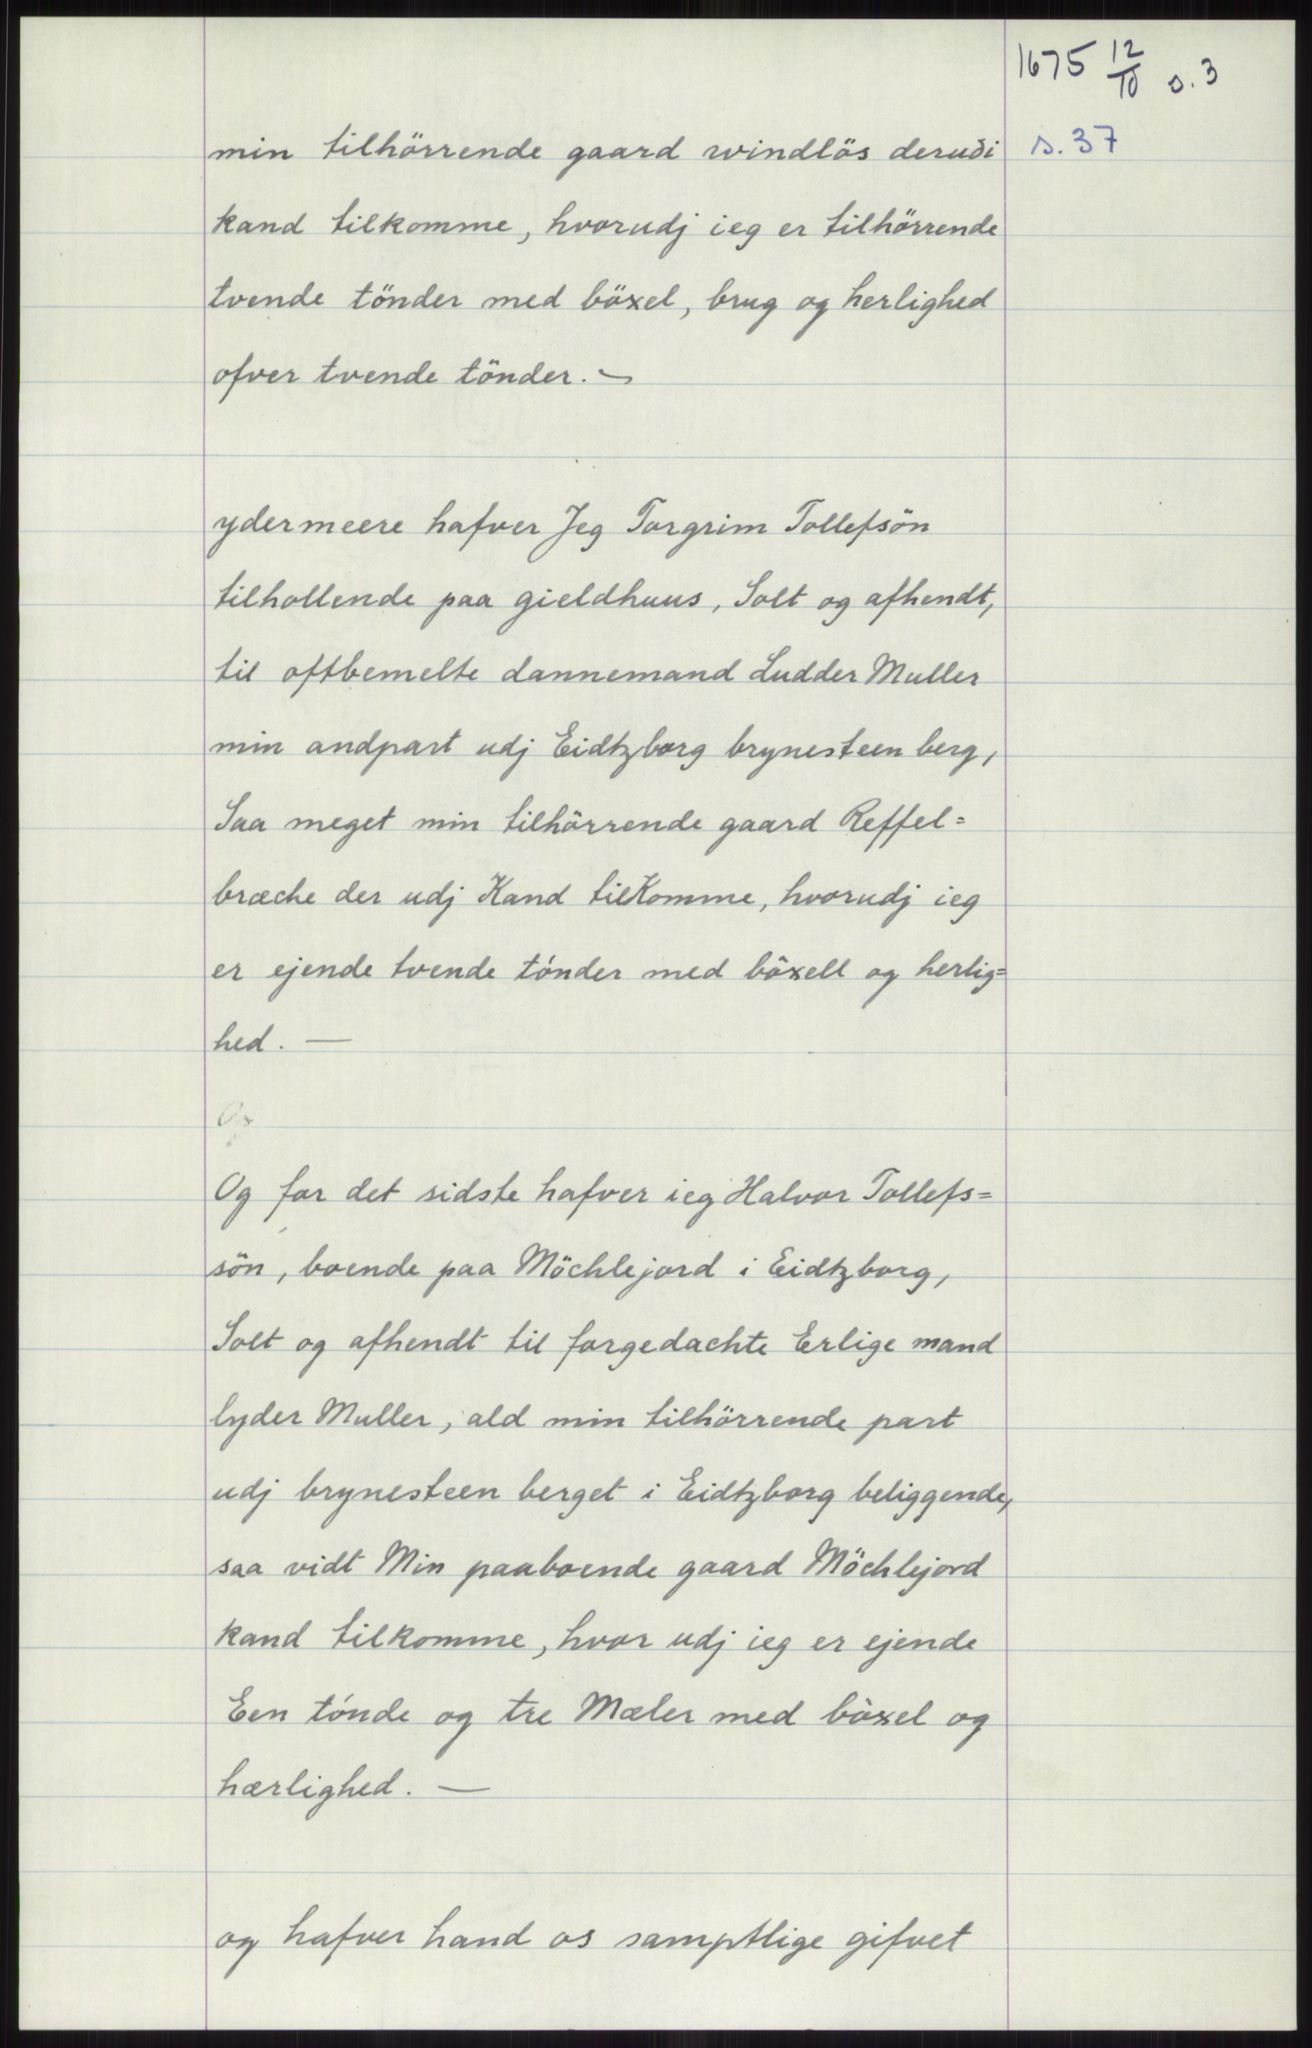 1675 12/10 s. 3
s. 37
min tilhörrende gaard windlös derudi
kand tilkomme, hvorudj ieg er tilhörrende
tvende tönder med böxel, brug og herlighed
ofver tvende tönder. —
ydermeere hafver Jeg Torgrim Tollefsön
tilhollende paa gieldhuus, Solt og afhendt,
til oftbemelte dannemand Ludder Muller
min andpart udj Eidtzborg brynesteen berg,
Saa meget min tilhörrende gaard Reffel=
bræche der udj Kand tilKomme, hvorudj ieg
er ejende tvende tönder med böxell og herlig=
hed. —
Og
Og for det sidste hafver ieg Halvor Tollefs=
sön, boende paa Möchlejord i Eidtzborg,
Solt og afhendt til forgedachte Erlige mand
lyder Muller, ald min tilhörrende part
udj brynesteen berget i Eidtzborg beliggende,
saa vidt Min paaboende gaard Möchlejord
kand tilkomme, hvor udj ieg er ejende
Een tönde og tre Mæler med böxel og
hærlighed. —
og hafver hand os samptlige gifvet